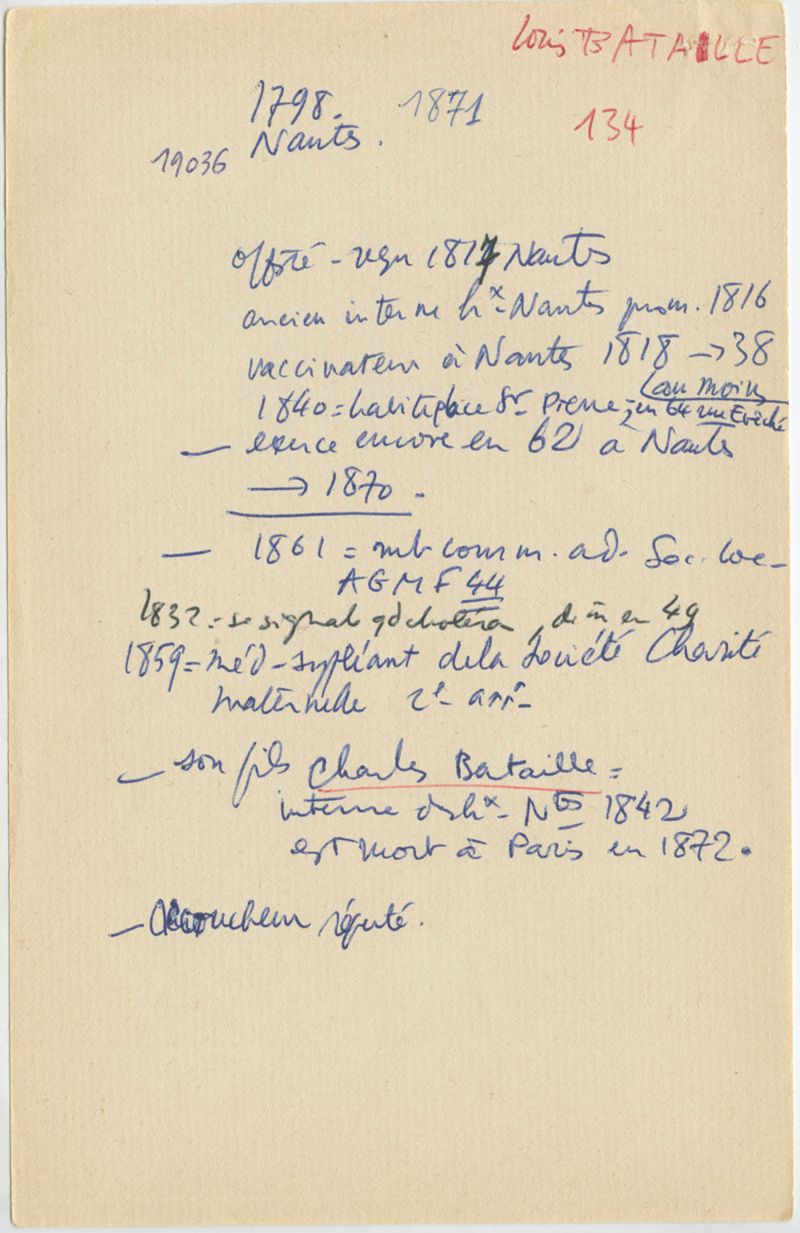 Louis BATAILLE
1798. 1871
134
19036 Nantes.
offté - reçu 1817 Nantes
ancien interne hx- Nantes prom. 1816
vaccinateur à Nantes 1818 → 38
(au moins
1840 = habite place St- Pierre; en 64 rue Evêché
— exerce encore en 62 à Nantes
→ 1870.
— 1861 = mb comm. ad. Soc. loc-
AGMF 44
1832 = se signale qd choléra, de m en 49
1859 = méd-suppléant de la Société Charité
maternelle 2e- arrt-
— son fils Charles Bataille =
interne ds hx- Ntes 1842
est mort à Paris en 1872.
— Accoucheur réputé.